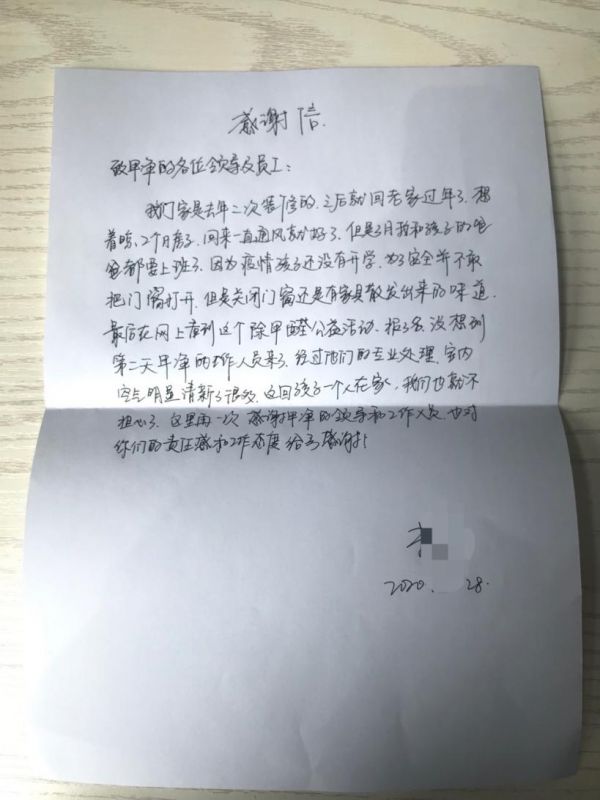 感谢信.
致甲净的各位领导及员工:
我们家是去年二次装修的.之后就回老家过年了.想
着晾.2个月房子.回来一直通风就好了.但是3月我和孩子的爸
爸都要上班了.因为疫情孩子还没有开学.为了安全并不敢
把门窗打开.但是关闭门窗还是有家具散发出来的味道.
最后在网上看到这个除甲醛公益活动.报了名.没想到
第二天甲净的工作人员来了.经过他们的专业处理.室内
空气明显清新了很多.这回孩子一个人在家,我们也就不
担心了.这里再一次感谢甲净的领导和工作人员.也对
你们的责任感和工作态度给予感谢!
2020. 28.